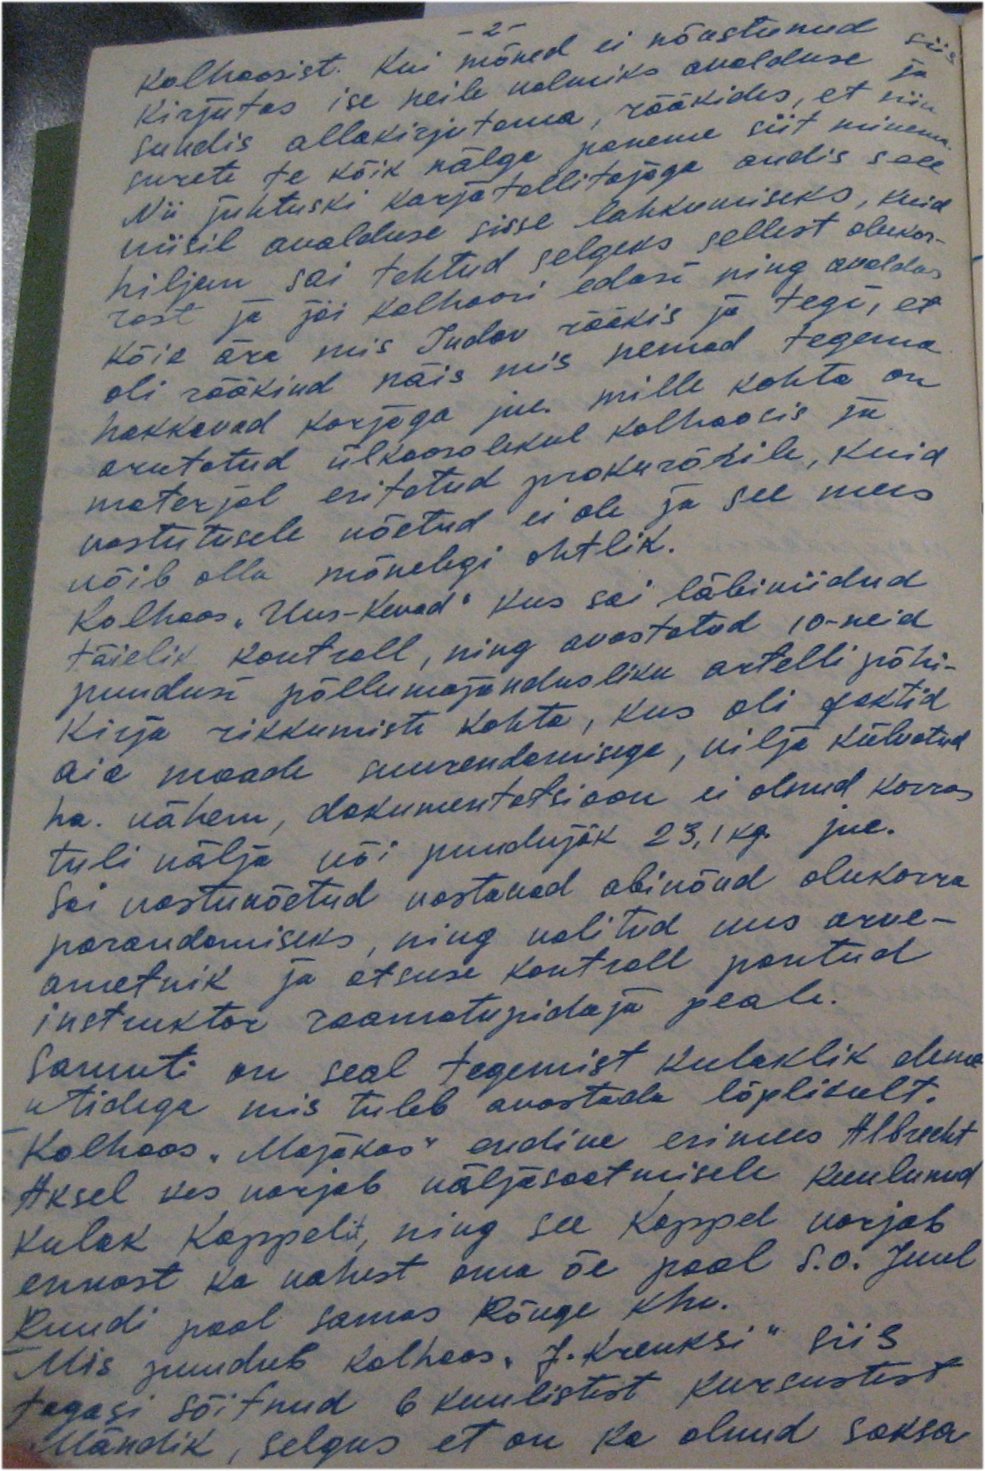 -2-
kolhoosist. Kui mõned ei nõustunud siis
kirjutas ise neile valmiks avalduse ja
sundis allakirjutama, rääkides, et niiu
surete te kõik nälga paneme siit minema.
Nii juhtuski karjatallitajaga andis selle
viisil avalduse sisse lahkumiseks, kuid
hiljem sai tehtud selgeks sellest olukor-
rast ja jäi kolhoosi edasi ning avaldas
kõik ära mis Indov rääkis ja tegi, et
oli rääkind näis mis nemad tegema
hakkavad karjaga jne. mille kohta on
arutatud ülkoosolekul kolhoosis ja
materjal esitatud prokurörile, kuid
vastutusele võetud ei ole ja see mees
võib olla mõnelegi ohtlik.
Kolhoos "Uus-Kevad" kus sai läbiviidud
täielik kontroll, ning avastatud 10-neid
puudusi põllumajandusliku artelli põhi-
kirja rikkumiste kohta, kus oli faktid
aia maade suurendamisega, vilja külvatud
ha. vähem, dokumentatsioon ei olnud korras
tuli välja või puudujäk 23,1 kg. jne.
Sai vastuvõetud vastavad abinõud olukorra
parandamiseks, ning valitud uus arve-
ametnik ja otsuse kontroll pantud
instruktor raamatupidaja peale.
Samuti on seal tegemist kulaklik eleme
ntidega mis tuleb avastada lõplikult.
Kolhoos "Majakas" endine esimees Albrecht
Aksel kes varjab väljasaatmisele kuulunud
kulak Koppelit, ning see Koppel varjab
ennast ka vahest oma õe pool s.o. Juul
Ruudi pool samas Rõuge khn.
Mis puudub kolhoos "J. Kreuksi" siis
tagasi sõitnud 6 kuulistest kursustest
Mändik, selgus et on ka olnud saksa